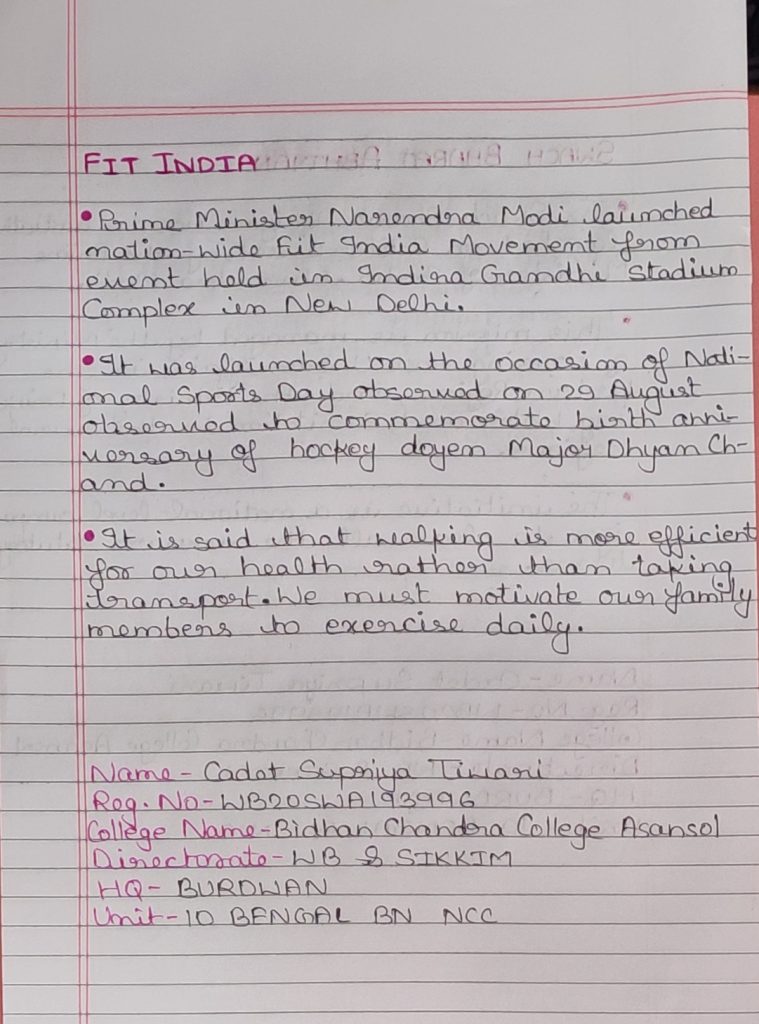 FIT INDIA
• Prime Minister Narendra Modi launched
nation-wide Fit India Movement from
event held in Indira Gandhi Stadium
Complex in New Delhi.
• It was launched on the occasion of Nati-
onal Sports Day observed on 29 August
observed to commemorate birth anni-
versary of hockey doyen Major Dhyan Ch-
and.
• It is said that walking is more efficient
for our health rather than taking
transport. We must motivate our family
members to exercise daily.
Name - Cadet Supriya Tiwari
Reg. No - WB20SWA193996
College Name - Bidhan Chandra College Asansol
Directorate - WB & SIKKIM
HQ - BURDWAN
Unit - 10 BENGAL BN NCC